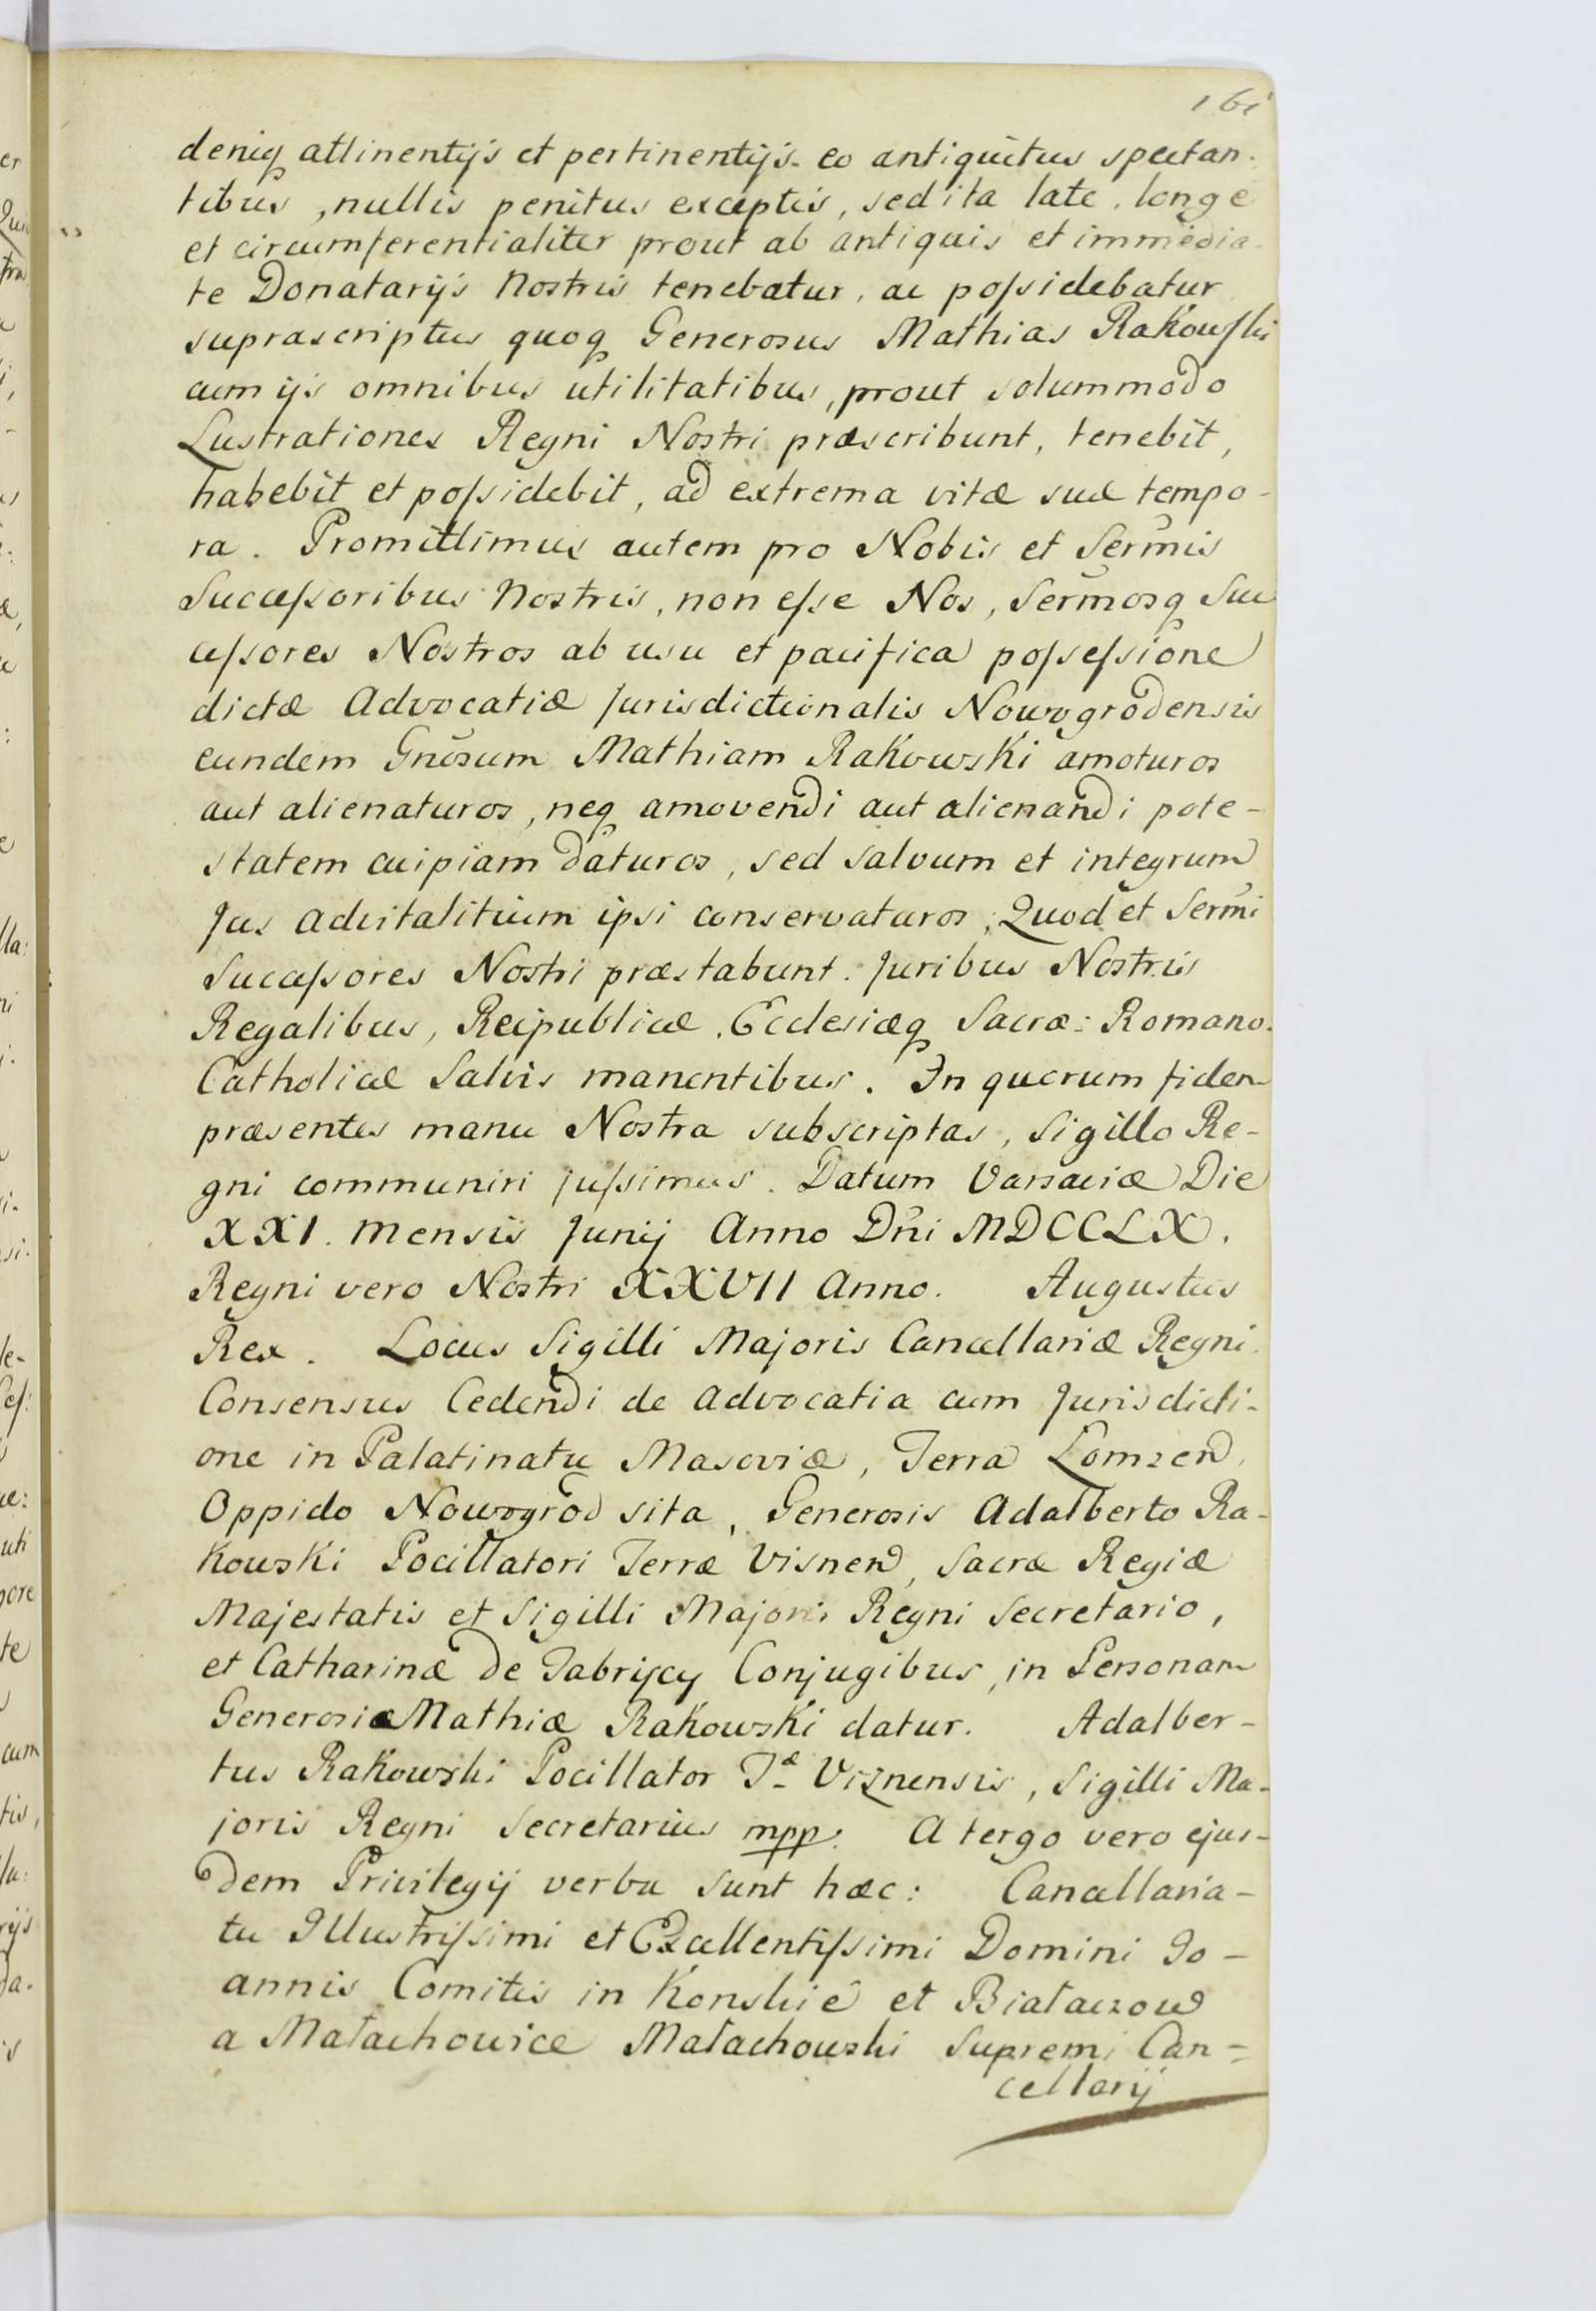 161
deniq attinentijs et pertinentijs eo antiquitus spectan-
tibus, nullis penitus exceptis, sed ita late, longe
et circumferentialiter prout ab antiquis et immedia-
te Donatarijs Nostris tenebatur, ac poſsidebatur
suprascriptus quoq Generosus Mathias Rakowſki
cum ijs omnibus utilitatibus, prout solummodo
Lustrationes Regni Nostri præscribunt, tenebit,
habebit et poſsidebit, ad extrema vitæ suæ tempo-
ra. Promittimus autem pro Nobis et Sermis
Succeſsoribus Nostris, non eſse Nos, Sermosq Suc
ceſsores Nostros ab usu et pacifica poſseſsione
dictæ Advocatiæ Jurisdictionalis Nowogrodensis
eundem Gnosum Mathiam Rakowski amoturos
aut alienaturos, neq amovendi aut alienandi pote-
statem cuipiam daturos, sed salvum et integrum
Jus Advitalitium ipsi conservaturos, Quod et Sermi
Succeſsores Nostri præstabunt. Juribus Nostris
Regalibus, Reipublicæ, Ecclesiæq Sacræ: Romano.
Catholicæ Salvis manentibus. In quorum fidem
præsentes manu Nostra subscriptas, Sigillo Re-
gni communiri juſsimus. Datum Varsaviæ Die
XXI. Mensis Junij Anno Dñi MDCCLX.
Regni vero Nostri XXVII Anno. Augustus
Rex. Locus Sigilli Majoris Cancellariæ Regni.
Consensus Cedendi de Advocatia cum Jurisdicti-
one in Palatinatu Masoviæ, Terra Lomzen,
Oppido Nowogrod sita, Generosis Adalberto Ra-
kowski Pocillatori Terræ Visnen, Sacræ Regiæ
Majestatis et Sigilli Majoris Regni Secretario,
et Catharinæ de Zabrijcy Conjugibus, in Personam
Generosi Mathiæ Rakowski datur. Adalber-
tus Rakowski Pocillator Tæ Viznensis, Sigilli Ma-
joris Regni Secretarius mpp: A tergo vero ejus-
dem Privilegij verba sunt hæc: Cancellaria-
tu Illustriſsimi et Excellentiſsimi Domini Jo-
annis Comitis in Konskie et Białaczow
a Małachowice Małachowski Supremi Can=
cellarij